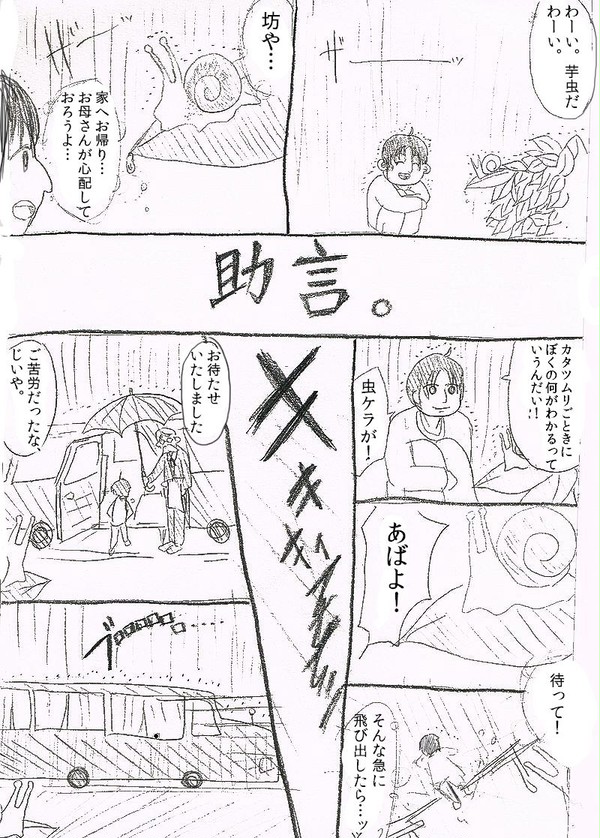 わーい。芋虫だ
わーい。
ザーーーッ
坊や…
ザーッ
家へお帰り…
お母さんが心配して
おろうよ…
助言。
カタツムリごときに
ぼくの何がわかるって
いうんだい!!
虫ケラが!
あばよ!
待って!
そんな急に
飛び出したら…ッ
キキィ
お待たせ
いたしました
ご苦労だったな、
じいや。